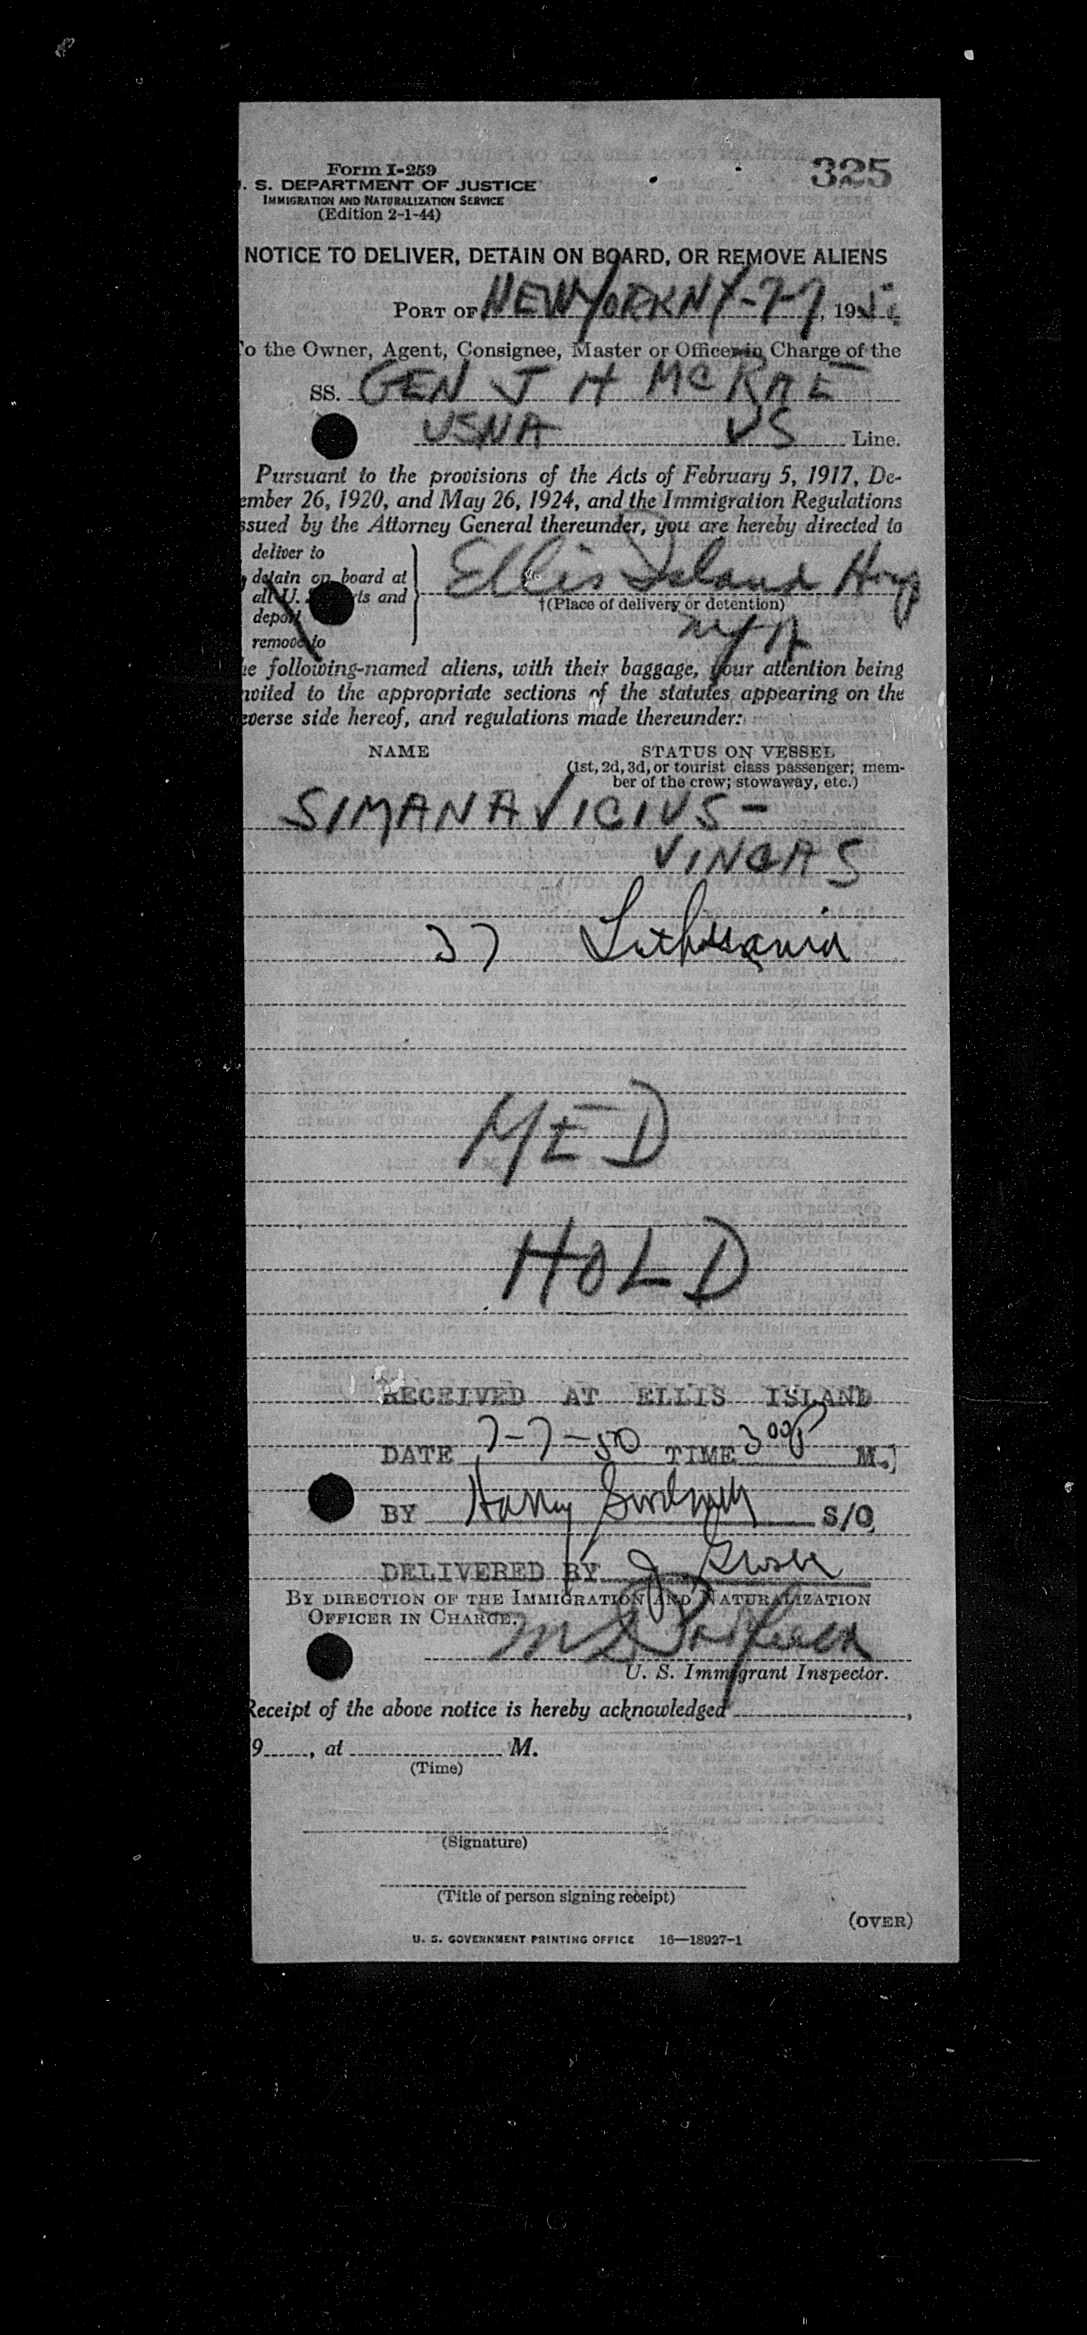 325
Form I-259
. S. DEPARTMENT OF JUSTICE
IMMIGRATION AND NATURALIZATION SERVICE
(Edition 2-1-44)
NOTICE TO DELIVER, DETAIN ON BOARD, OR REMOVE ALIENS
PORT OF NEW YORK NY-7-7, 195
o the Owner, Agent, Consignee, Master or Officer in Charge of the
SS. GEN J H MCRAE
USNA US Line.
Pursuant to the provisions of the Acts of February 5, 1917, De-
ember 26, 1920, and May 26, 1924, and the Immigration Regulations
ssued by the Attorney General thereunder, you are hereby directed to
deliver to
detain on board at
all U. S. ports and
deport
remove to
Ellis Island Hosp
†(Place of delivery or detention)
NYH
e following-named aliens, with their baggage, your attention being
nvited to the appropriate sections of the statutes appearing on the
everse side hereof, and regulations made thereunder:
NAME STATUS ON VESSEL
(1st, 2d, 3d, or tourist class passenger; mem-
ber of the crew; stowaway, etc.)
SIMANAVICIUS-
VINCAS
37 Lithuania
MED
HOLD
RECEIVED AT ELLIS ISLAND
DATE 7-7-50 TIME 3 00 P M.
BY Harry S/O
DELIVERED BY J
BY DIRECTION OF THE IMMIGRATION AND NATURALIZATION
OFFICER IN CHARGE.
U. S. Immigrant Inspector.
Receipt of the above notice is hereby acknowledged ,
9 , at M.
(Time)
(Signature)
(Title of person signing receipt)
(OVER)
U. S. GOVERNMENT PRINTING OFFICE 16—18927-1